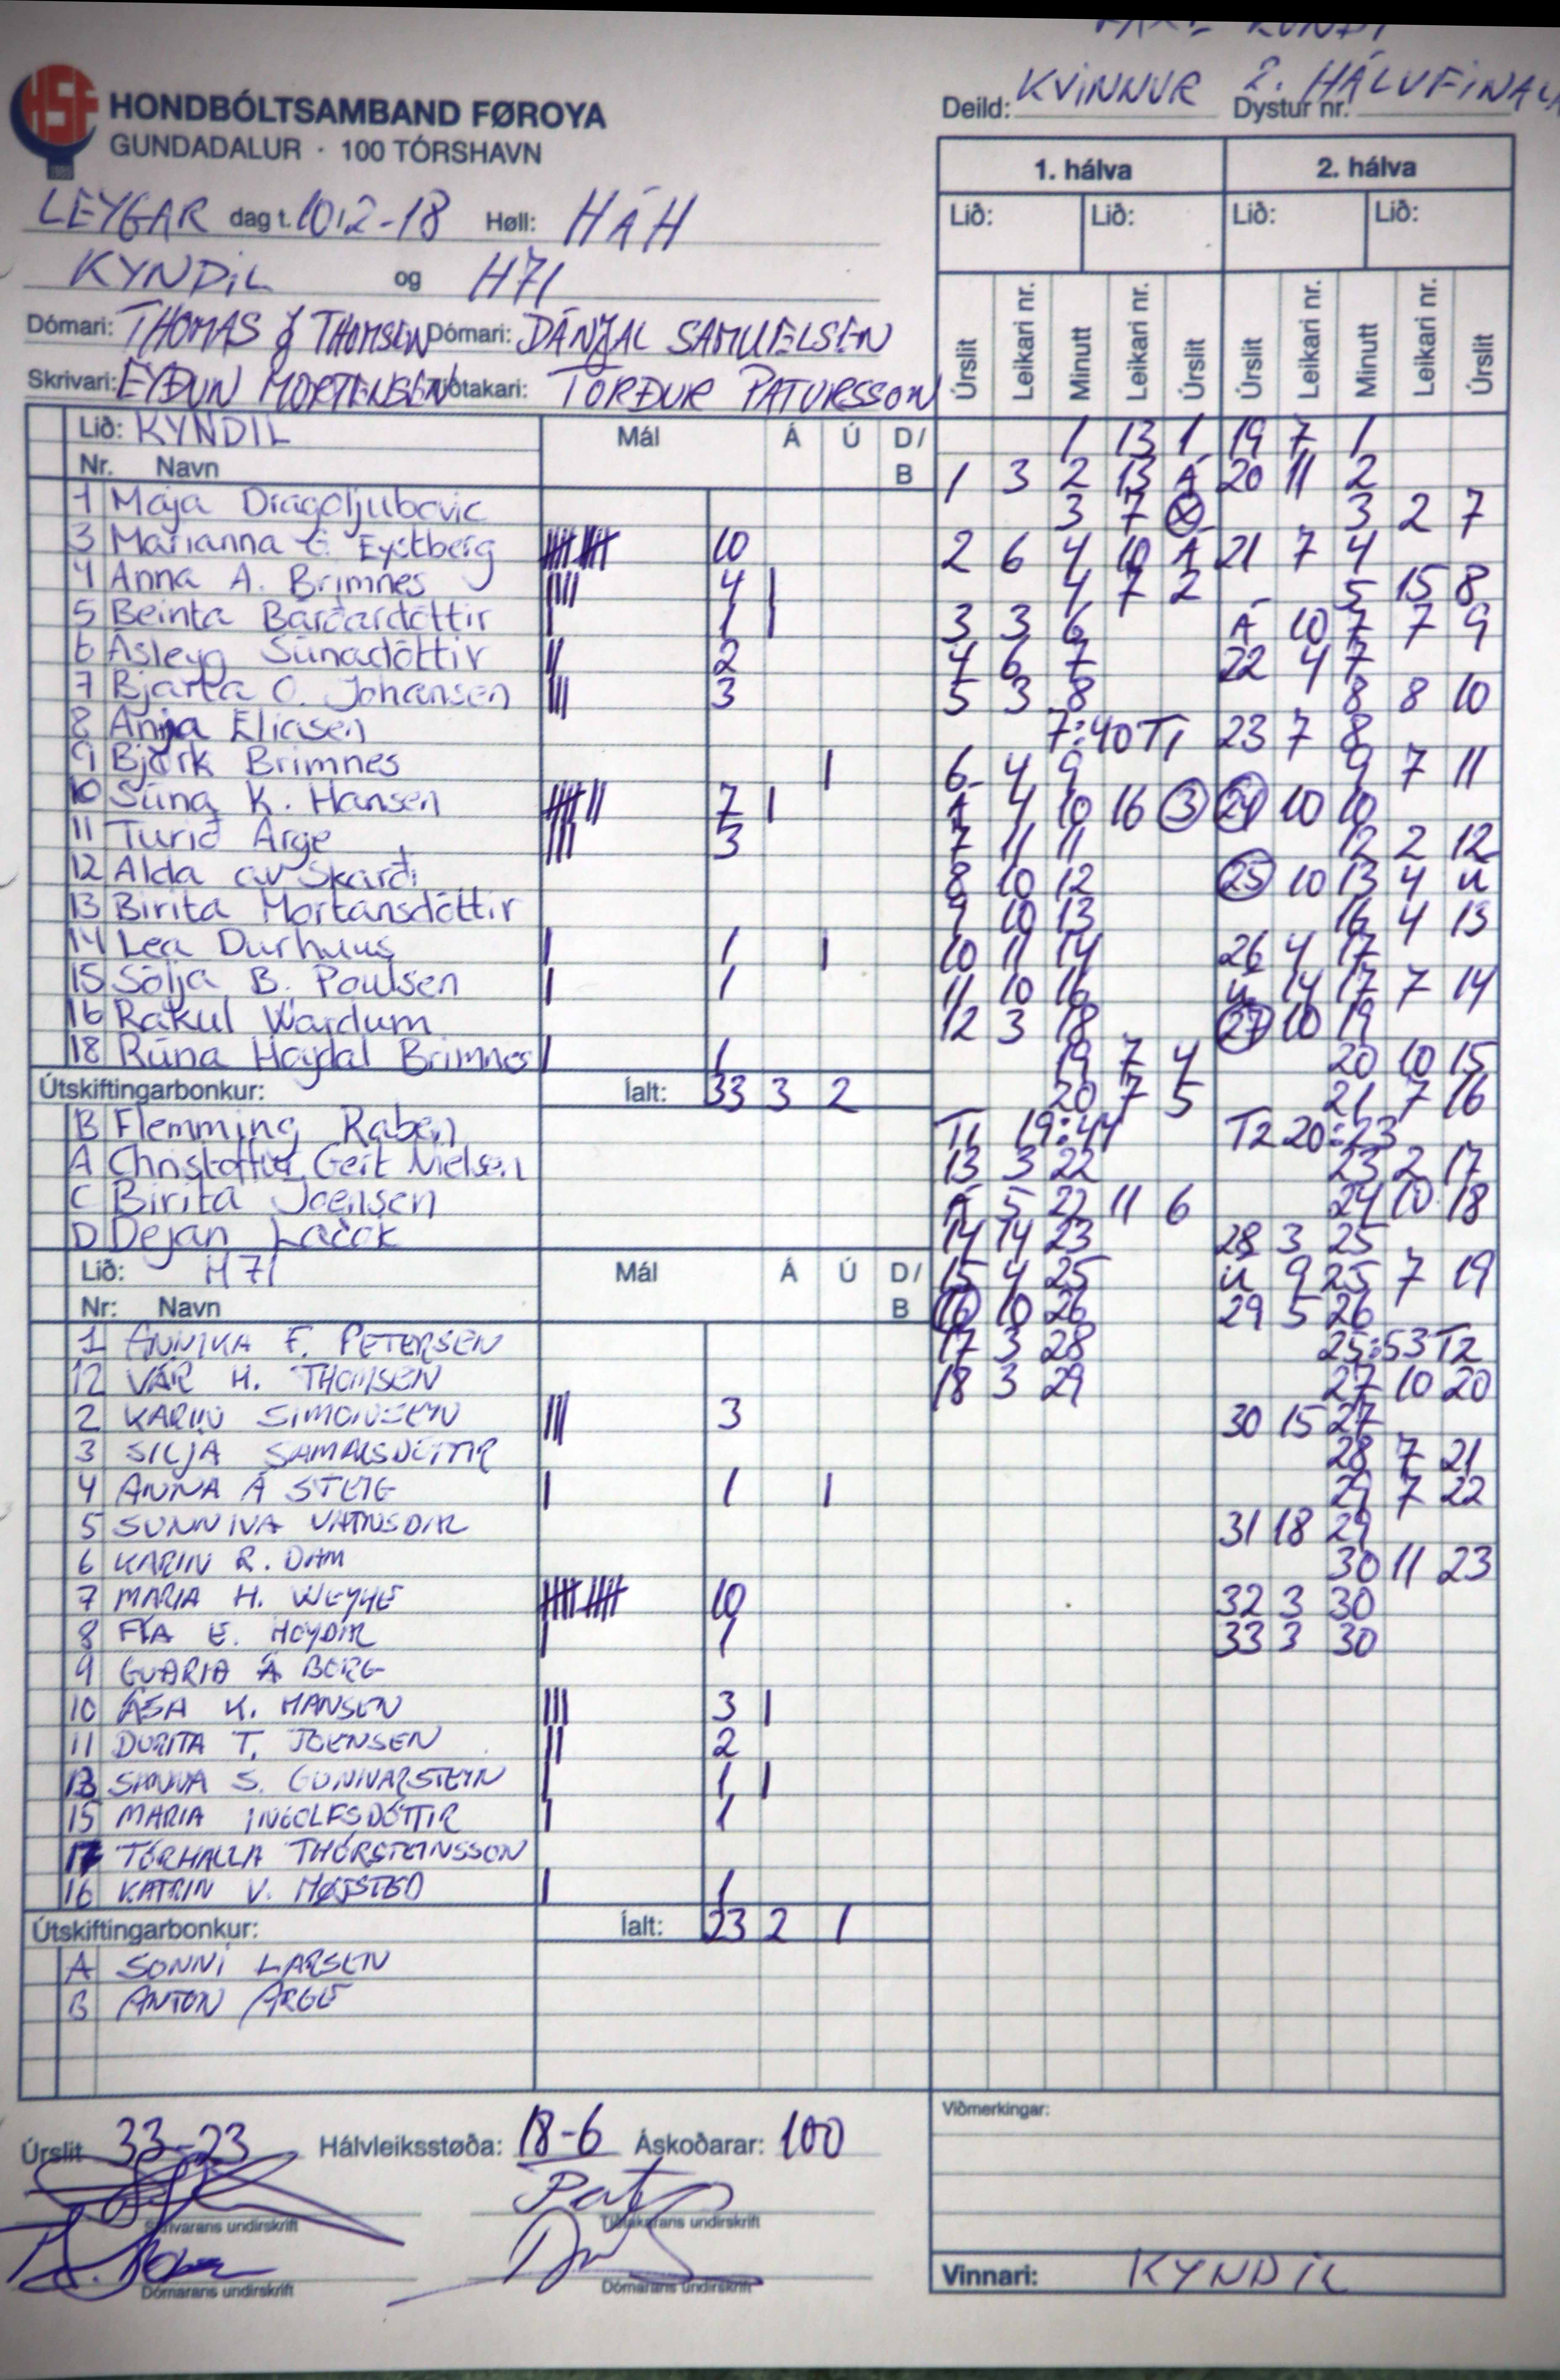 KVINNUR 2. HÁLVFINALA
Deild: Dystur nr.
HSF HONDBÓLTSAMBAND FØROYA
GUNDADALUR · 100 TÓRSHAVN
LEYGAR dag t. 10/2-18 Høll: HÁH
KYNDIL og H71
Dómari: THOMAS J THOMSEN Dómari: DÁNJAL SAMUELSEN
Skrivari: EYÐUN MORTENSEN Tíðtakari: TÓRÐUR PATURSSON
Lið: KYNDIL Mál Á Ú D/B
Nr. Navn
1 Maja Dragoljubovic
3 Marianna E Eystberg 10
4 Anna A. Brimnes 4 |
5 Beinta Barðardóttir 1 |
6 Ásleyg Súnadóttir 2
7 Bjarta O. Johansen 3
8 Anja Eliasen
9 Bjørk Brimnes |
10 Súna K. Hansen 7 |
11 Turið Arge 3
12 Alda av Skarði
13 Birita Mortansdóttir
14 Lea Durhuus 1 |
15 Sólja B. Poulsen 1
16 Rakul Wardum
18 Rúna Høydal Brimnes 1
Útskiftingarbonkur: Íalt: 33 3 2
B Flemming Raben
A Christoffur Geit Nielsen
C Birita Joensen
D Dejan Lačok
Lið: H71 Mál Á Ú D/B
Nr: Navn
1 ANNIKA F. PETERSEN
12 VÁR H. THOMSEN
2 KARIN SIMONSEN 3
3 SILJA SAMALSDÓTTIR
4 ANNA Á STEIG 1 |
5 SUNNIVA VATNSDAL
6 KARIN R. DAM
7 MARIA H. WEYHE 10
8 FÍA E. HOYDAL 1
9 GUÐRIÐ Á BORG
10 ÁSA K. HANSEN 3 |
11 DURITA T. JOENSEN 2
13 SANNA S. GUNNARSTEIN 1 |
15 MARIA INGOLFSDÓTTIR 1
17 TÓRHALLA THÓRSTEINSSON
16 KATRIN V. HØJSTED 1
Útskiftingarbonkur: Íalt: 23 2 1
A SONNI LARSEN
B ANTON ARGE
Úrslit 33-23 Hálvleiksstøða: 18-6 Áskoðarar: 100
Skrivarans undirskrift Tíðtakarans undirskrift
Dómarans undirskrift Dómarans undirskrift
1. hálva 2. hálva
Lið: Lið: Lið: Lið:
Úrslit Leikari nr. Minutt Leikari nr. Úrslit Úrslit Leikari nr. Minutt Leikari nr. Úrslit
1 13 1 19 7 1
1 3 2 13 Á 20 11 2
3 7 X 3 2 7
2 6 4 10 Á 21 7 4
4 7 2 5 15 8
3 3 6 Á 10 7 7 9
4 6 7 22 4 7
5 3 8 8 8 10
7:40 T1 23 7 8
6 4 9 9 7 11
Á 4 10 16 3 24 10 10
7 11 11 12 2 12
8 10 12 25 10 13 4 Ú
9 10 13 16 4 13
10 11 14 26 4 17
11 10 16 Ú 14 17 7 14
12 3 18 27 10 19
19 7 4 20 10 15
20 7 5 21 7 16
T1 19:44 T2 20:23
13 3 22 23 2 17
Á 5 22 11 6 24 10 18
14 14 23 28 3 25
15 4 25 Ú 9 25 7 19
16 10 26 29 5 26
17 3 28 25:53 T2
18 3 29 27 10 20
30 15 27
28 7 21
29 7 22
31 18 29
30 11 23
32 3 30
33 3 30
Viðmerkingar:
Vinnari: KYNDIL